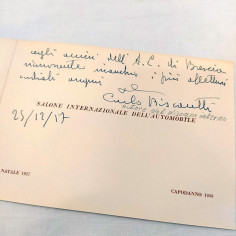 agli amici dell'A.C. di Brescia
riconoscente
i più affettuosi
cordiali auguri
Carlo Biscaretti
SALONE INTERNAZIONALE DELL'AUTOMOBILE
25/12/57
NATALE 1957
CAPODANNO 1958